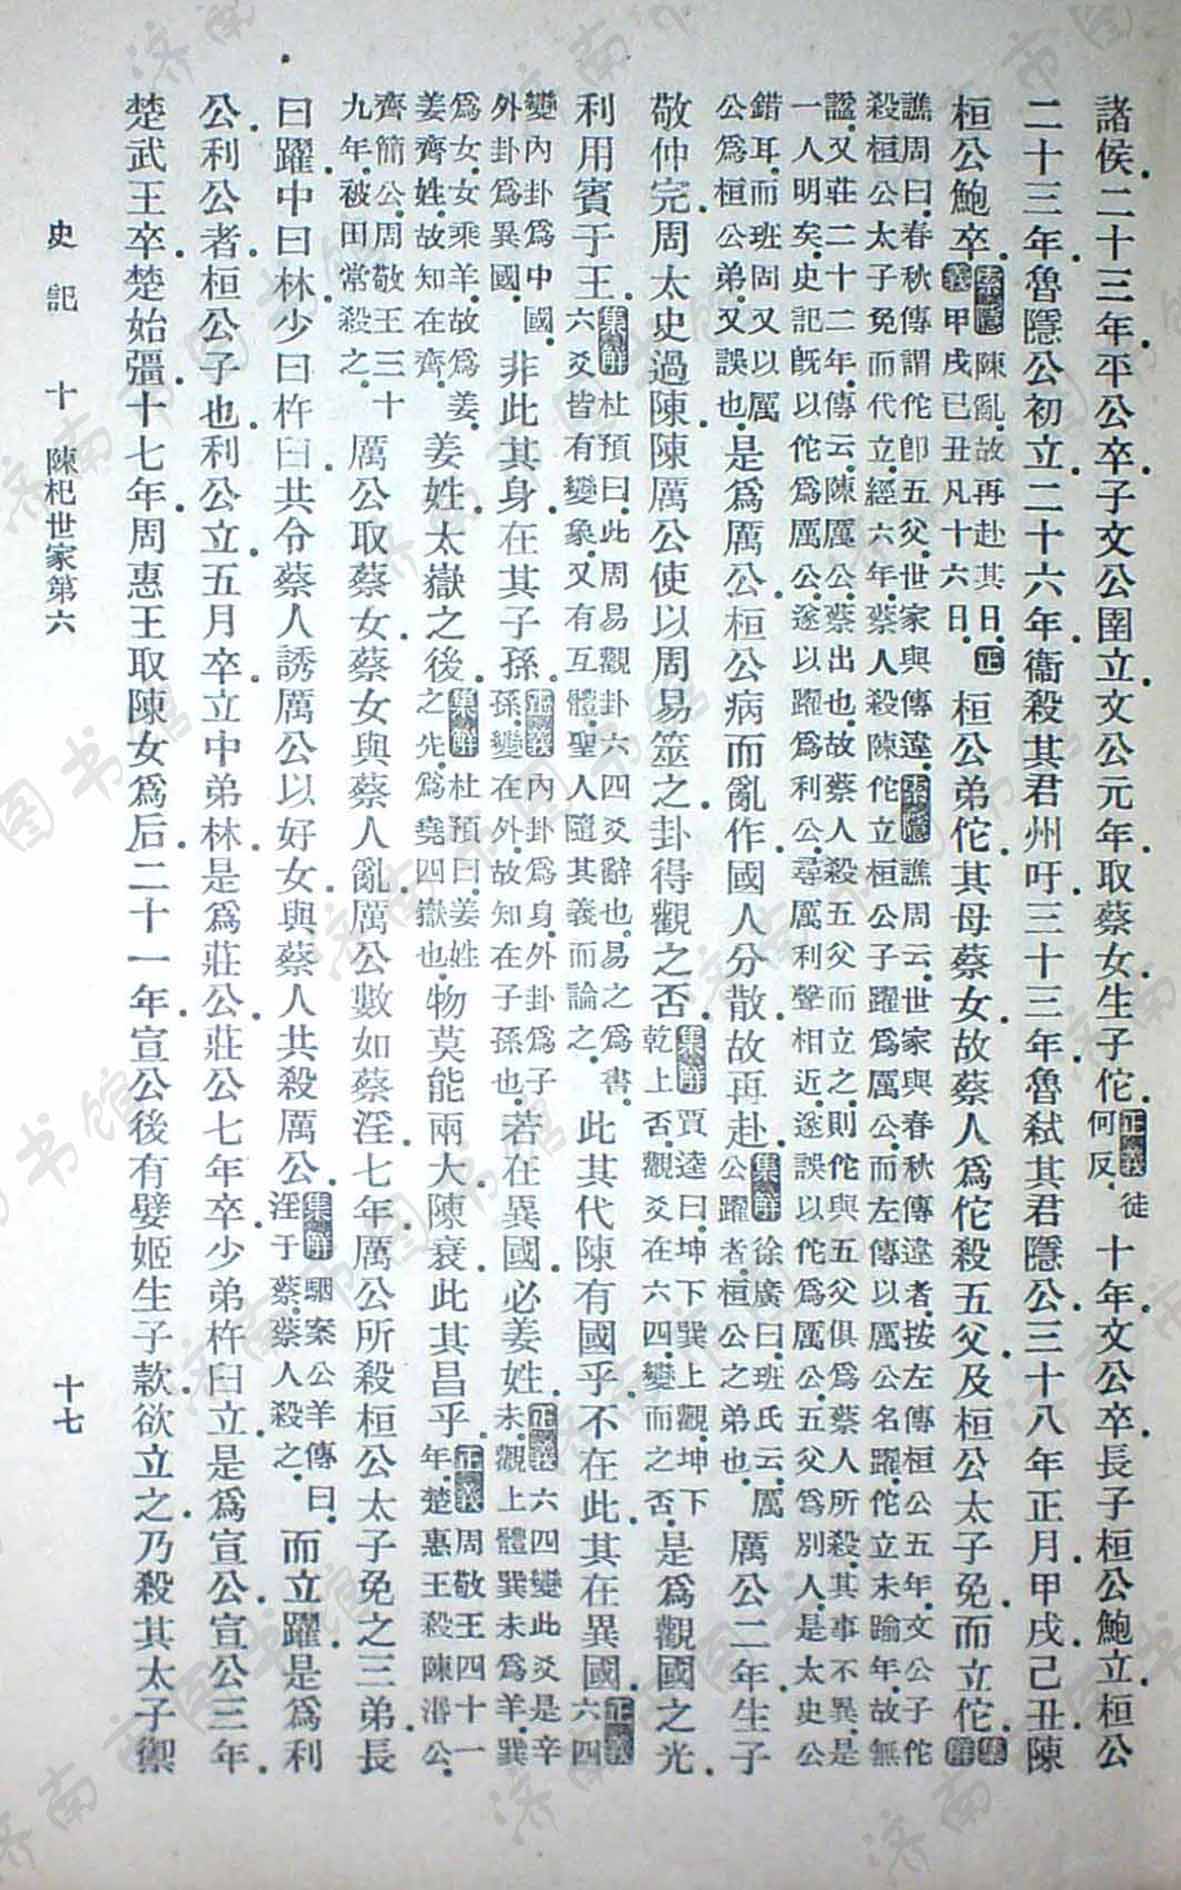 諸侯.二十三年.平公卒.子文公圉立.文公元年.取蔡女.生子佗.正義徒何反.十年.文公卒.長子桓公鮑立.桓公
二十三年.魯隱公初立.二十六年.衞殺其君州吁.三十三年.魯弒其君隱公.三十八年正月.甲戌己丑.陳
桓公鮑卒.索隱陳亂.故再赴其日.正義甲戌已丑凡十六日.桓公弟佗.其母蔡女.故蔡人爲佗殺五父.及桓公太子免.而立佗.集解
譙周曰.春秋傳謂佗卽五父.世家與傳違.索隱譙周云.世家與春秋傳違者.按左傳桓公五年.文公子佗
殺桓公太子免而代立.經六年.蔡人殺陳佗.立桓公子躍爲厲公.而左傳以厲公名躍.佗立未踰年.故無
謚.又莊二十二年.傳云.陳厲公.蔡出也.故蔡人殺五父而立之.則佗與五父俱爲蔡人所殺.其事不異.是
一人明矣.史記旣以佗爲厲公.遂以躍爲利公.尋厲利聲相近.遂誤以佗爲厲公.五父爲別人.是太史公
錯耳.而班固又以厲公爲桓公弟.又誤也.是爲厲公.桓公病而亂作.國人分散.故再赴.集解徐廣曰.班氏云.厲公躍者.桓公之弟也.厲公二年.生子
敬仲完.周太史過陳.陳厲公使以周易筮之.卦得觀之否.集解賈逵曰.坤下巽上觀.坤下乾上否.觀爻在六四.變而之否.是爲觀國之光.
利用賓于王.集解杜預曰.此周易觀卦六四爻辭也.易之爲書.六爻皆有變象.又有互體.聖人隨其義而論之.此其代陳有國乎.不在此.其在異國.正義六四
變內卦爲中國.外卦爲異國.非此其身.在其子孫.正義內卦爲身.外卦爲子孫.變在外.故知在子孫也.若在異國.必姜姓.正義六四變此爻是辛未.觀上體巽未爲羊.巽
爲女.女乘羊.故爲姜.姜齊姓.故知在齊.姜姓.太嶽之後.集解杜預曰.姜姓之先.爲堯四嶽也.物莫能兩大.陳衰.此其昌乎.正義周敬王四十一年.楚惠王殺陳湣公.
齊簡公.周敬王三十九年.被田常殺之.厲公取蔡女.蔡女與蔡人亂.厲公數如蔡淫.七年.厲公所殺桓公太子免之三弟.長
曰躍.中曰林.少曰杵臼.共令蔡人誘厲公以好女.與蔡人共殺厲公.集解駰案公羊傳曰.淫于蔡.蔡人殺之.而立躍.是爲利
公.利公者.桓公子也.利公立.五月卒.立中弟林.是爲莊公.莊公七年卒.少弟杵臼立.是爲宣公.宣公三年.
楚武王卒.楚始彊.十七年.周惠王取陳女爲后.二十一年.宣公後有嬖姬生子款.欲立之.乃殺其太子禦
史記 十 陳杞世家第六 十七
济南市图书馆